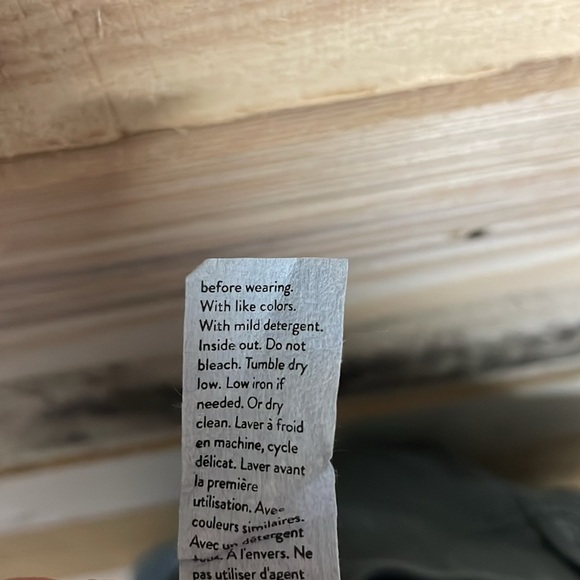 before wearing.
With like colors.
With mild detergent.
Inside out. Do not
bleach. Tumble dry
low. Low iron if
needed. Or dry
clean. Laver à froid
en machine, cycle
délicat. Laver avant
la première
utilisation. Avec
couleurs similaires.
Avec un détergent
À l'envers. Ne
pas utiliser d'agent